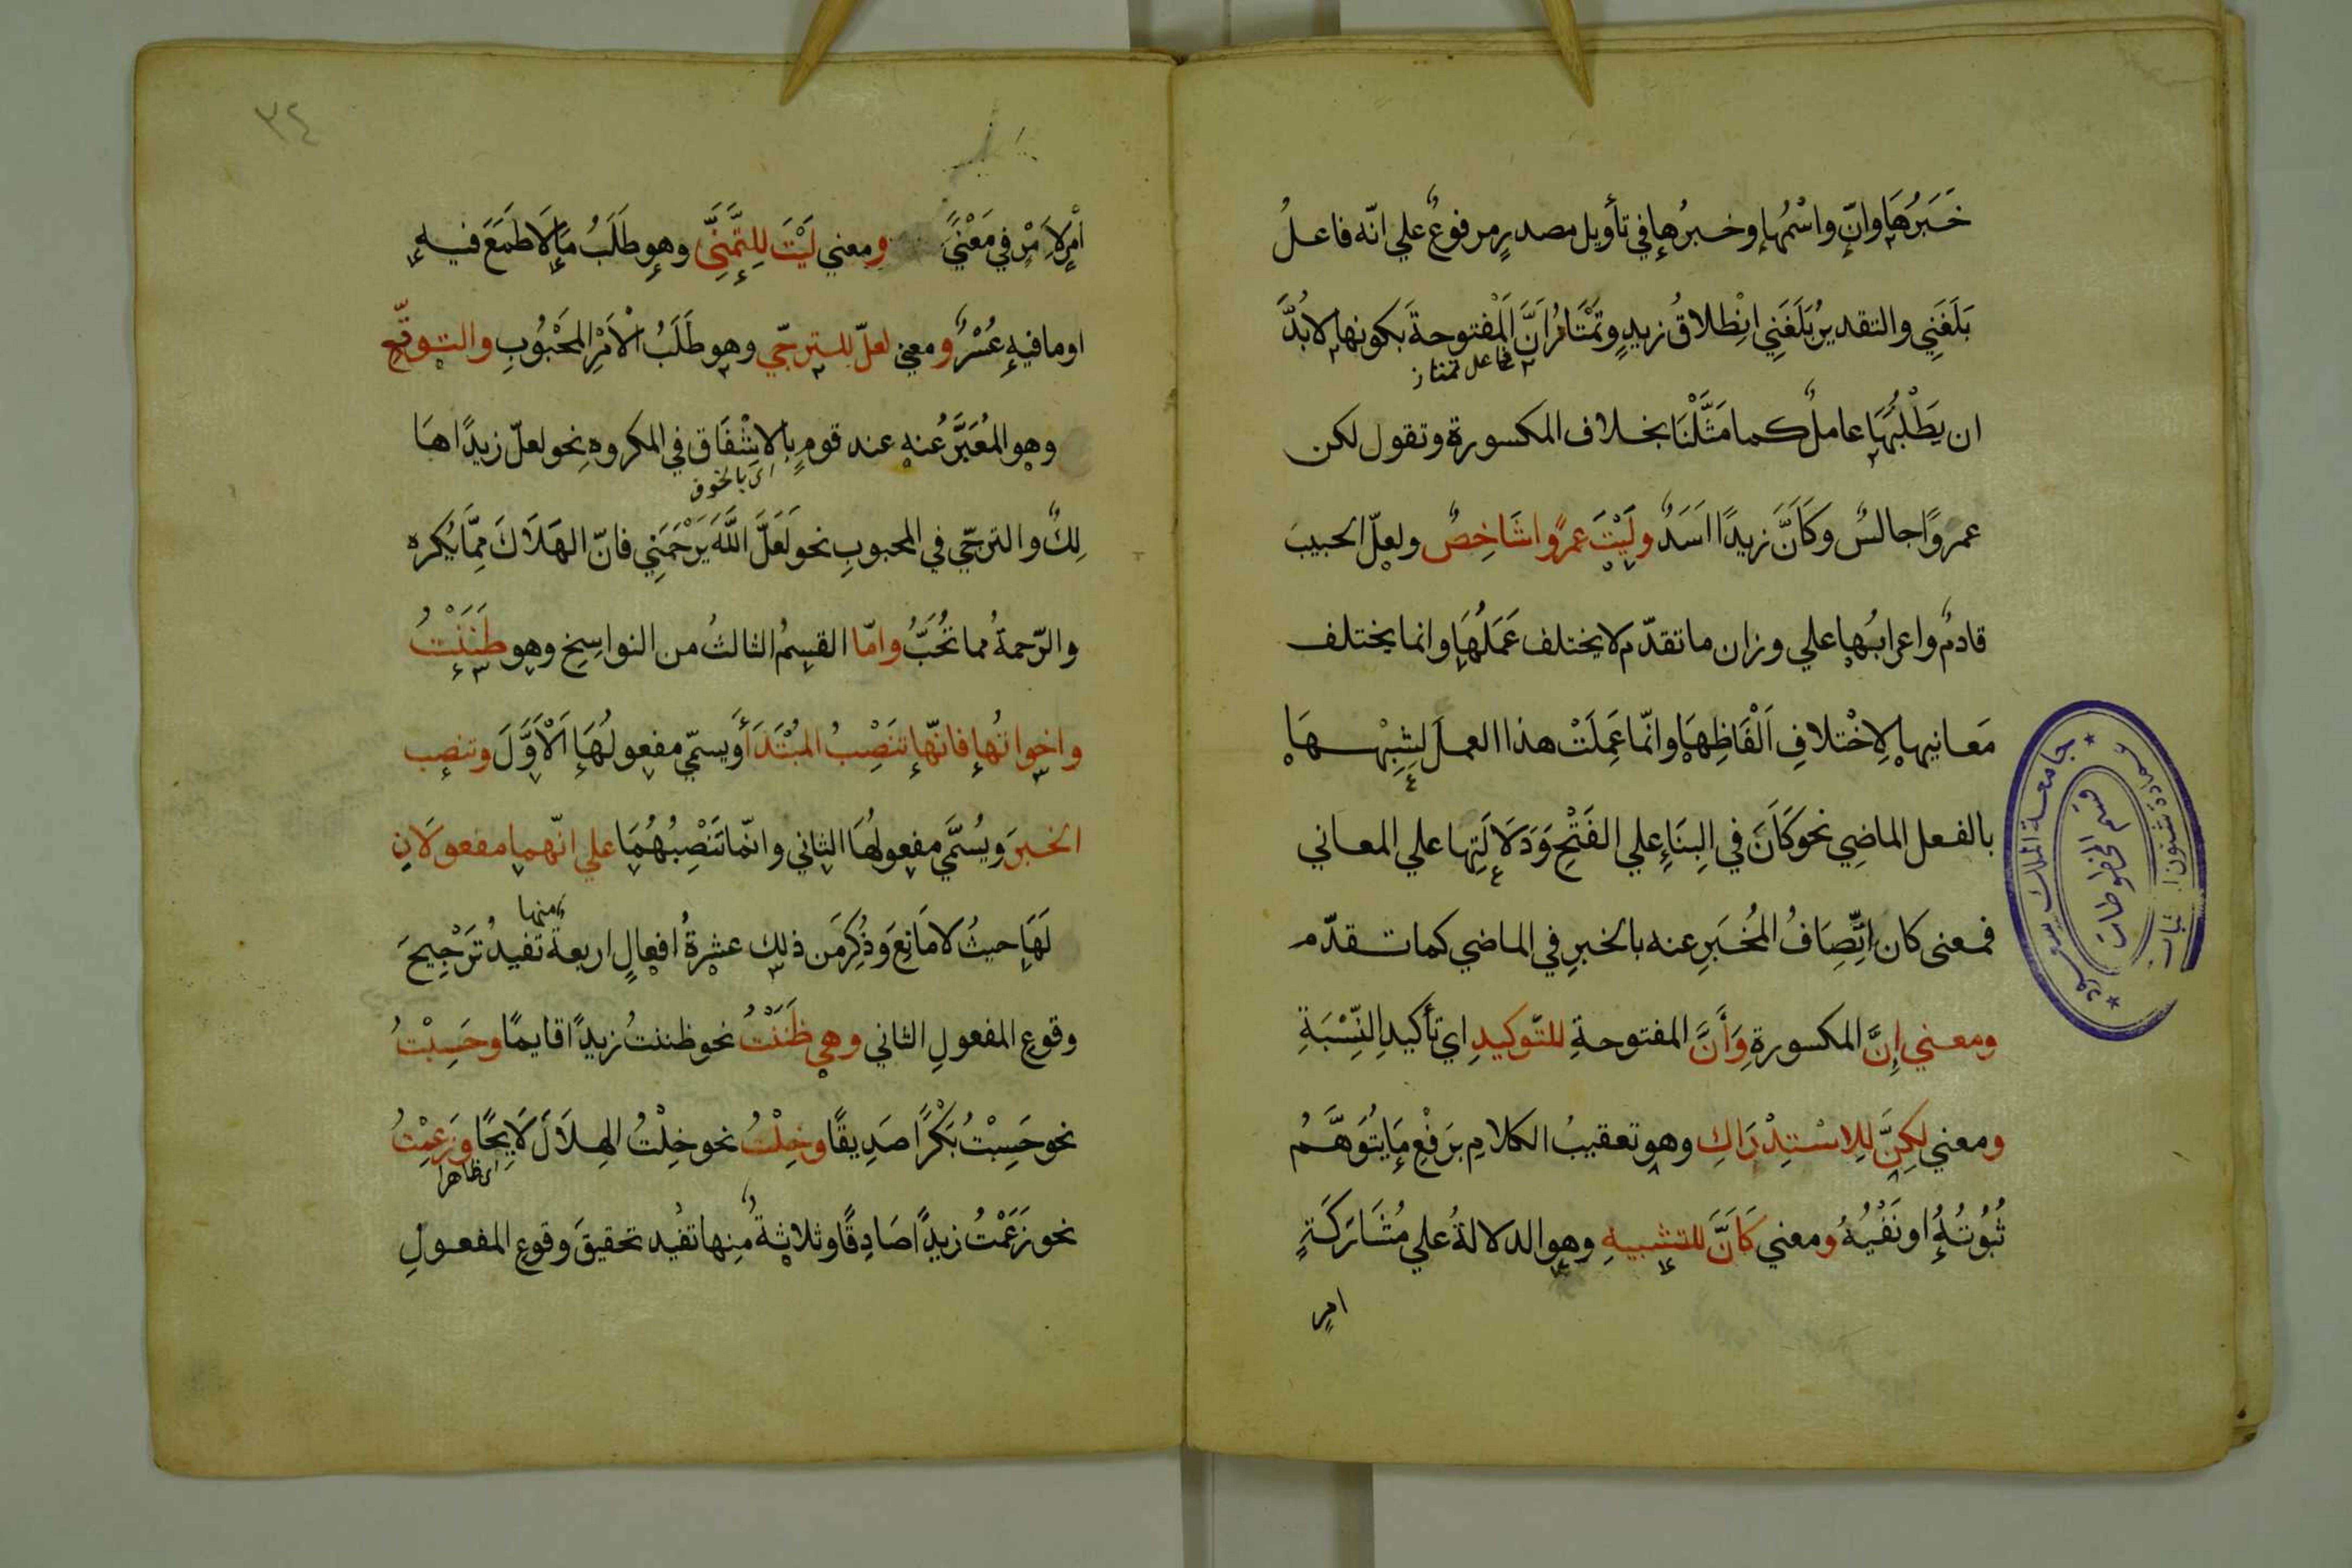 خَبَرُهَا وانّ واسْمُها وخبرُها في تأويل مصدرٍ مرفوعٌ علي انّه فاعلُ
بَلَغَنِي والتقديرُ بَلَغَنِي انْطلاقُ زيدٍ وتَمْتَازُ اَنَّ اَلمفتوحةَ بكونها لابُدَّ
فاعل تمتاز
ان يَطْلُبَهَا عاملٌ كما مَثَّلْنَا بخلاف المكسورة وتقول لكن
عمروًا جالسٌ وكَاَنَّ زيدًا اَسَدٌ ولَيْتَ عمرًوا شَاخِصٌ ولعلّ الحبيبَ
قادمٌ واعرابُها علي وزان ما تقدّم لا يختلف عَمَلُهَا وانما يختلف
مَعانيها لِاخْتلافِ اَلْفَاظِهَا وانّما عَمِلَتْ هذا العملَ لِشِبْهِهَا
بالفعل الماضِي نحو كَانَ في البِنَاءِ علي الفَتْحِ وَدَلَالَتِها علي المعاني
فمعنى كان اتِّصَافُ المُخْبَرِ عنه بالخبرِ في الماضي كما تقدّم
ومعني إِنَّ المكسورةِ وَأَنَّ المفتوحةِ للتّوكيدِ اي تأكيدِ النِّسْبَةِ
ومعني لكِنَّ لِلاسْتِدْرَاكِ وهو تعقيبُ الكلامِ برَفْعِ مَا يُتَوَهَّمُ
ثُبُوتُهُ او نَفْيُهُ ومعني كَاَنَّ للتشبيهِ وهو الدلالةُ علي مُشَارَكَةٍ
امرٍ
جامعة الملك سعود
عمادة شئون المكتبات
قسم المخطوطات
٣٤
امْرٍ لِاَمْرٍ في مَعْنًي ومعني لَيْتَ لِلتَّمَنِّي وهو طَلَبُ مَا لَا طَمَعَ فيه
او ما فيه عُسْرٌ ومعني لعلّ للترجّي وهو طَلَبُ الْاَمْرِ المَحْبُوْبِ والتوقّع
وهو المُعَبَّرُ عنه عند قومٍ بالاشْفَاق في المكروه نحو لعلّ زيدًا هَا
اى بالخوف
لِكٌ والترجّي في المحبوبِ نحو لَعَلَّ اللَّهَ يَرْحَمَنِي فانّ الهَلَاكَ مِمَّا يُكره
والرّحمةُ مما تُحَبُّ وامّا القسمُ الثالثُ من النواسِخ وهو ظَنَنْتُ
واخواتُها فانّها تَنْصِبُ المُبْتَدَأَ ويسمّي مفعولُهَا الْاَوَّلَ وتنصِب
الخبرَ ويُسَمَّي مفعولُهَا الثاني وانّما تَنْصِبُهُمَا علي انّهما مفعولَانِ
لَهَا حيثُ لا مَانِعَ وَذُكِرَ مَن ذلك عشرةُ افعالٍ اربعةٌ منها تفيدُ تَرْجِيحَ
وقوعِ المفعولِ الثاني وهي ظَنَنْتُ نحو ظننتُ زيدًا قايمًا وحَسِبْتُ
نحو حَسِبْتُ بَكْرًا صَدِيقًا وخِلْتُ نحو خِلْتُ الهِلَالَ لَايِحًا وزَعَمْتُ
اى ظاهرا
نحو زَعَمْتُ زيدًا صَادِقًا وثلاثةٌ مِنها تفُيد تحقيقَ وقوعِ المفعولِ